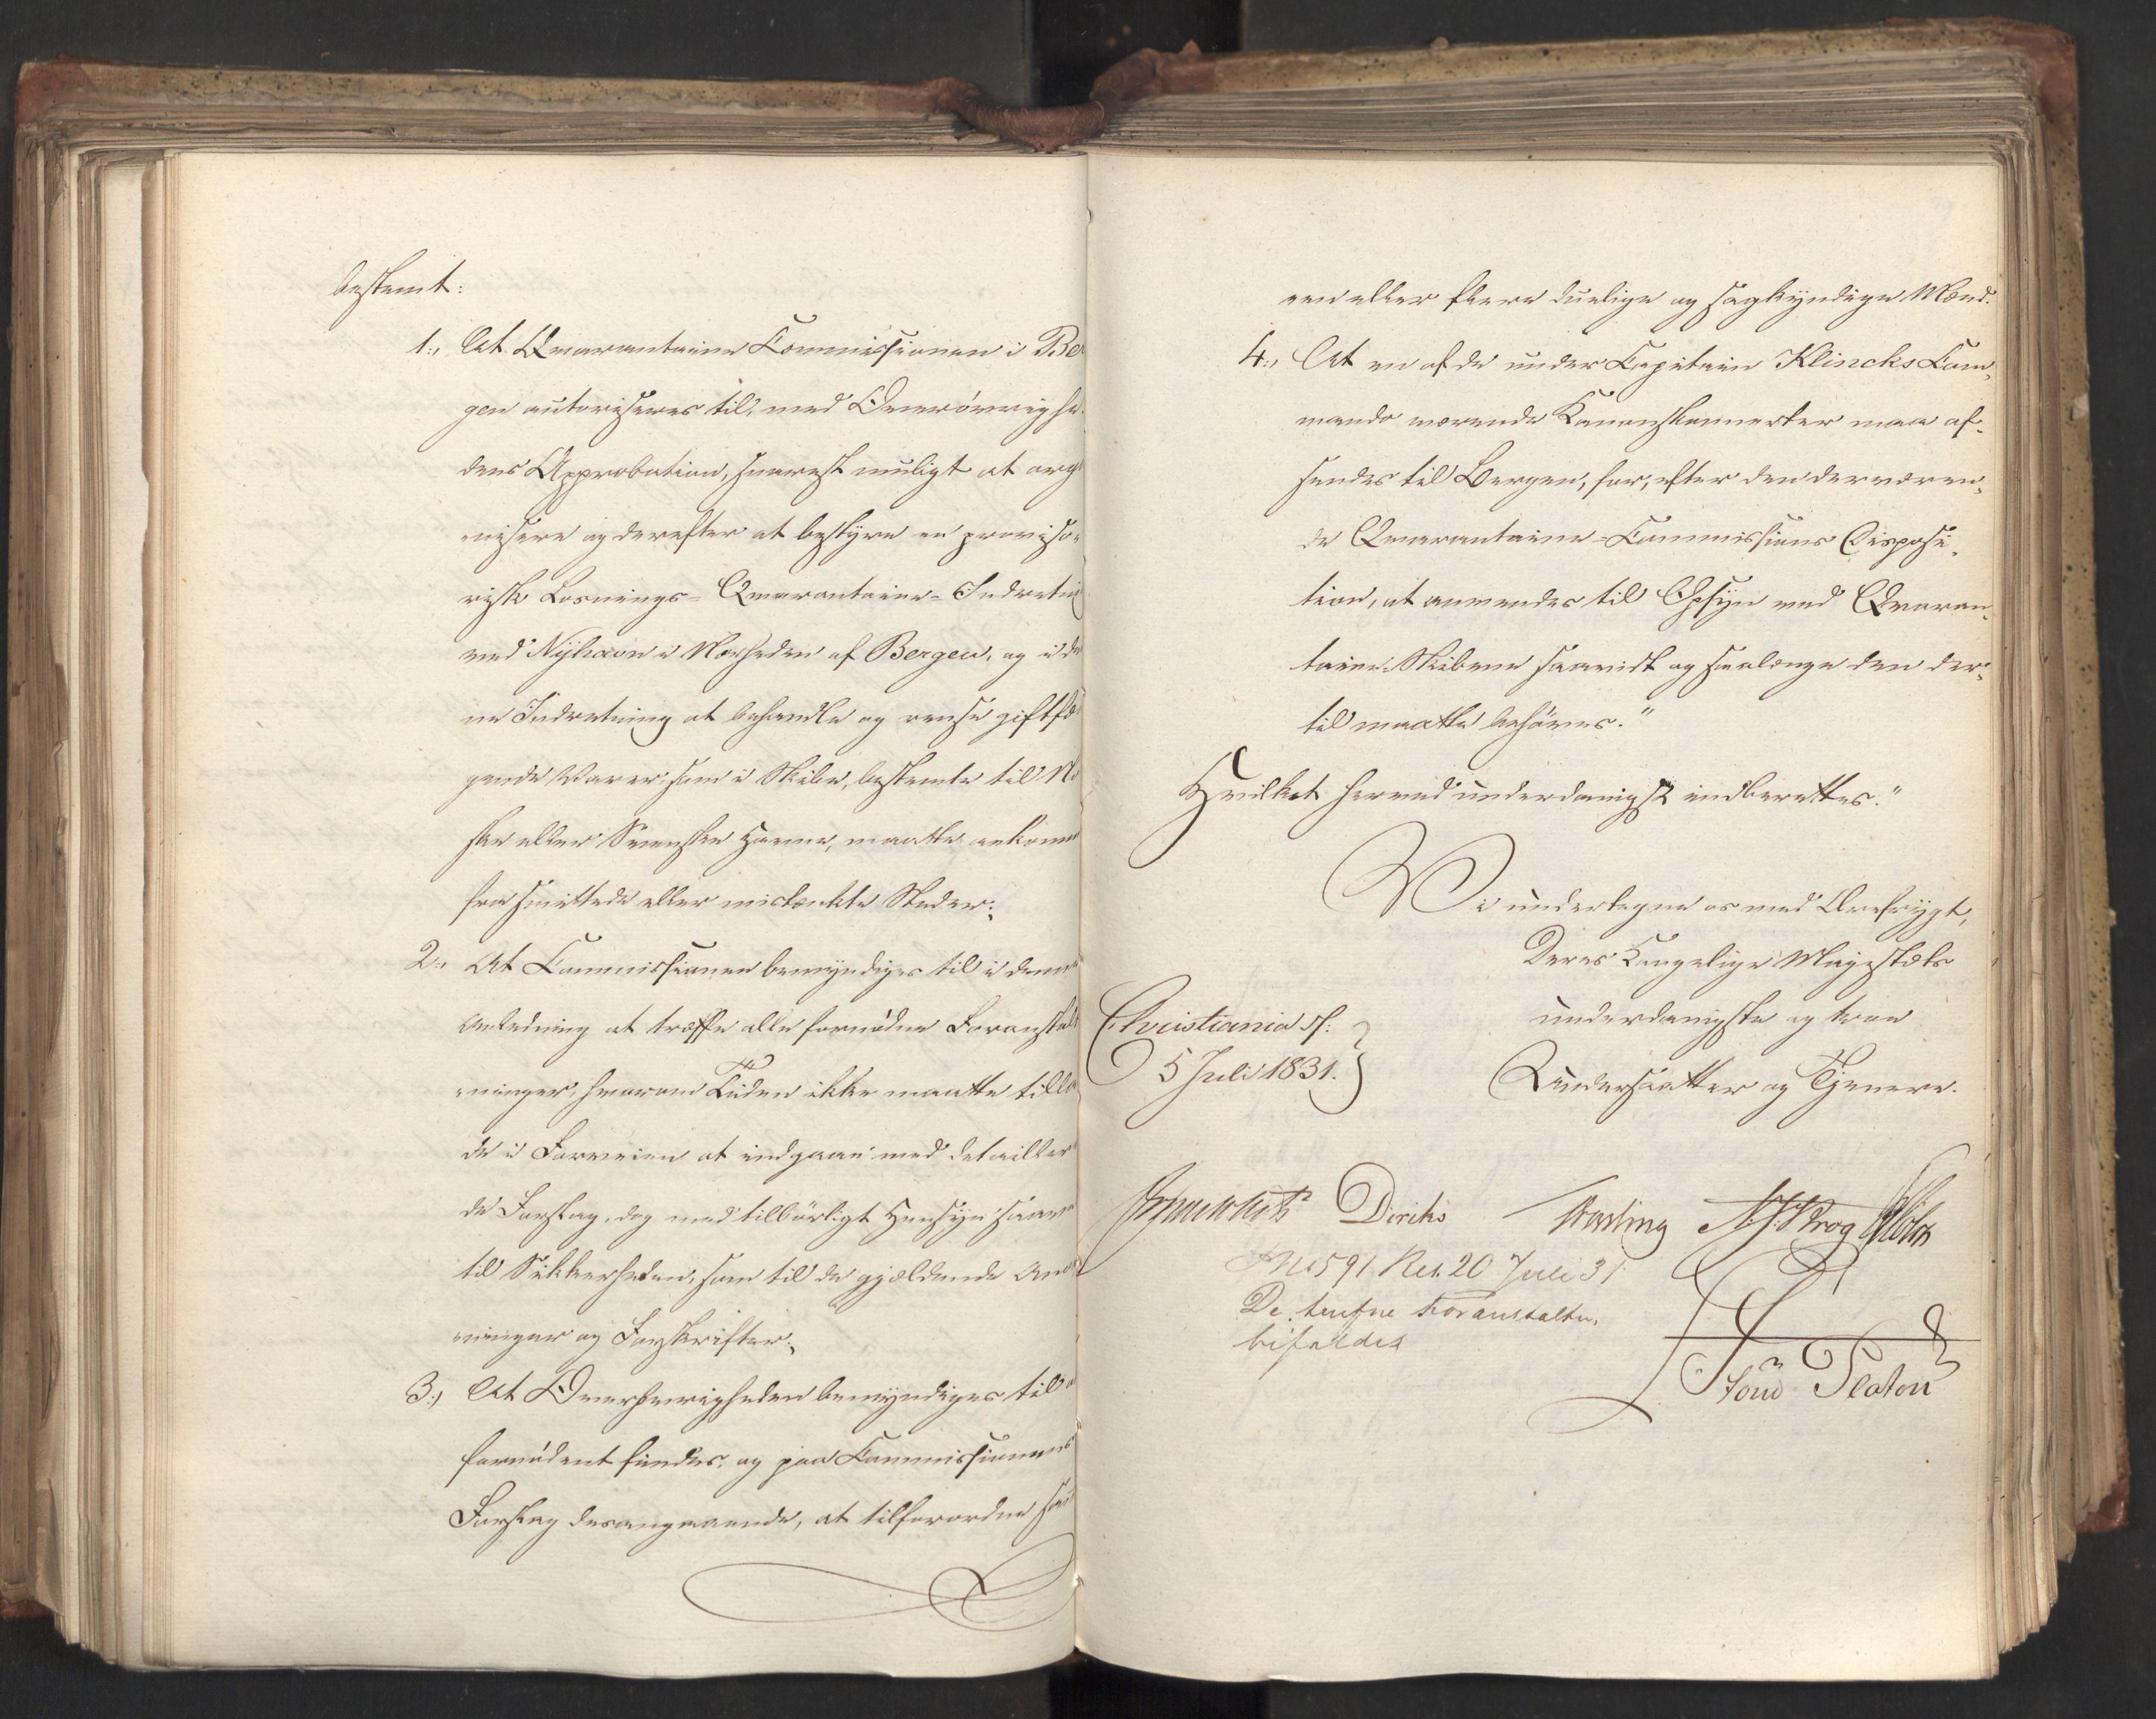 bestemt:
1., At Qvarantaine Commissionen i Ber
gen autoriseres til, med Overøvrighe
dens Approbation, snarest muligt at orga
nisere og derefter at bestyre en proviso-
risk Losnings-Qvarantaine-Indretnin
ved Nÿhavn i Nærheden af Bergen, og i den
ne Indretning at behandle og rense giftfæn
gende Varer, som i Skibe, bestemte til No
ske eller Svenske Havne, maatte ankomme
fra smittede eller mistænkte Steder;
2., At Commissionen bemyndiges til i denne
Anledning at træffe alle fornødne Foranstalt
ninger, hvorom Tiden ikke maatte tilla
de i Forveien at indgaae med detaillere
de Forslag, dog med tilbørligt Hensyn saavel
til Sikkerheden, som til de gjældende Anord
ninger og Forskrifter;
3., At Overøvrigheden bemyndiges til
fornødent findes, og paa Commissionens
Forslag desangaaende, at tilforordne
een eller flere duelige og sagkyndige Mænd.
4., At en af de under Capitain Klincks Com-
mando værende Kanonskonnerter maa af-
sendes til Bergen, for, efter den derværen-
de Qvarantaine-Commissions Disposi-
tion, at anvendes til Opsyn med Qvaran-
taine Skibene saavidt og saalænge den der-
til maatte behøves."
Hvilket herved underdanigst indberettes."
Vi undertegne os med Ærefrygt,
Deres Kongelige Majestæts
underdanigste og troe
Undersaatter og Tjenere.
Christiania d.
5 Juli 1831.
Diriks Fasting Krog
No 591 Res. 20 Juli 31
De trufne Foranstaltn.
bifaldes
Platou